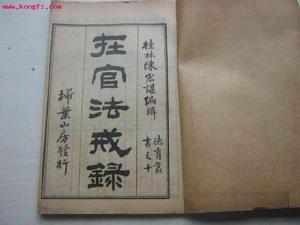 www.kongfz.com
桂林陳宏謀編輯
德育叢
書之十
在官法戒錄
埽葉山房發行